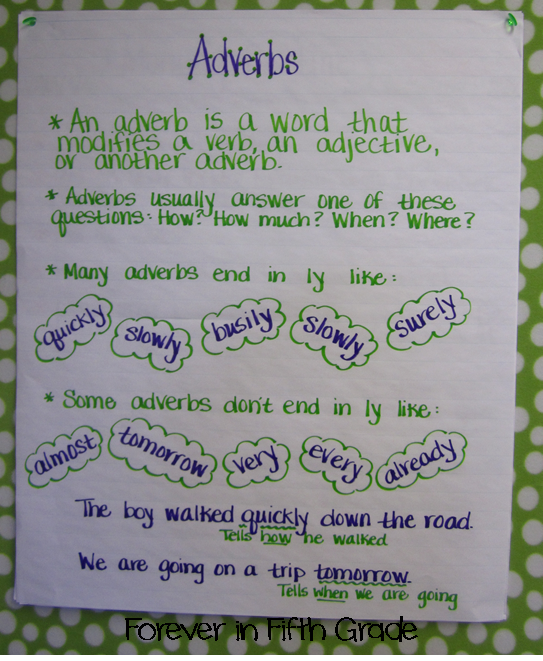 Adverbs
* An adverb is a word that
modifies a verb, an adjective,
or another adverb.
* Adverbs usually answer one of these
questions: How? How much? When? Where?
* Many adverbs end in ly like:
quickly slowly busily slowly surely
* Some adverbs don't end in ly like:
almost tomorrow very every already
The boy walked quickly down the road.
Tells how he walked
We are going on a trip tomorrow.
Tells when we are going
Forever in Fifth Grade